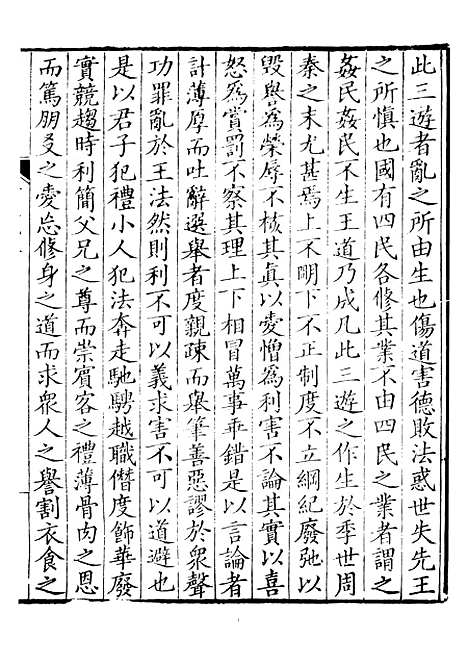 此三遊者亂之所由生也傷道害德敗法惑世失先王
之所慎也國有四民各修其業不由四民之業者謂之
姦民姦民不生王道乃成凡此三遊之作生於季世周
秦之末尤甚焉上不明下不正制度不立綱紀廢弛以
毀譽為榮辱不核其真以愛憎為利害不論其實以喜
怒為賞罰不察其理上下相冒萬事乖錯是以言論者
計薄厚而吐辭選舉者度親疎而舉筆善惡謬於衆聲
功罪亂於王法然則利不可以義求害不可以道避也
是以君子犯禮小人犯法奔走馳騁越職僭度飾華廢
實競趨時利簡父兄之尊而崇賓客之禮薄骨肉之恩
而篤朋友之愛忘修身之道而求衆人之譽割衣食之